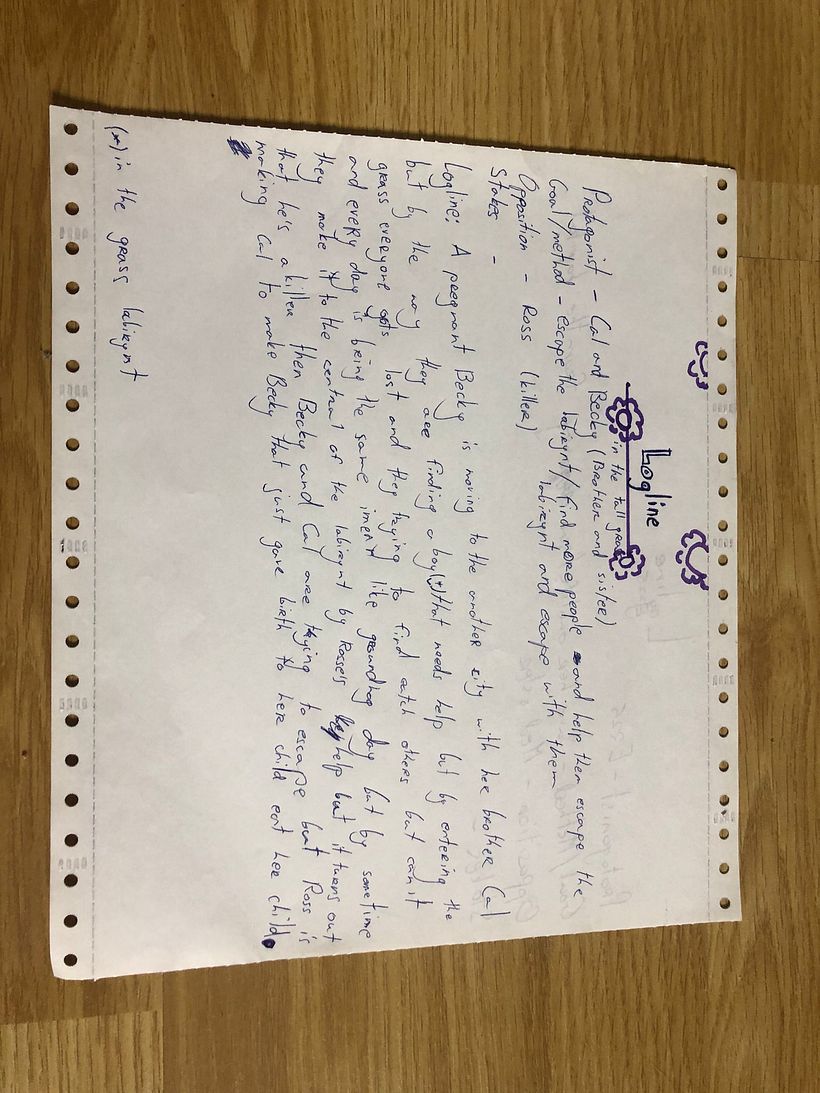 Logline
in the tall grass
Protagonist - Cal and Becky (Brother and sister)
Goal/method - escape the labirynt/ find more people and help them escape the
labirynt and escape with them
Opposition - Ross (killer)
Stakes -
Logline: A pregnant Becky is moving to the another city with her brother Cal
but by the way they are finding a boy(*) that needs help but by entering the
grass everyone gets lost and they trying to find eatch others but can't
and every day is being the same like groundhog day but by sometime
they make it to the central of the labirynt by Rosse's help but it turns out
that he's a killer then Becky and Cal are trying to escape but Ross is
making Cal to make Becky that just gave birth to her child eat her child.
(*) in the grass labirynt